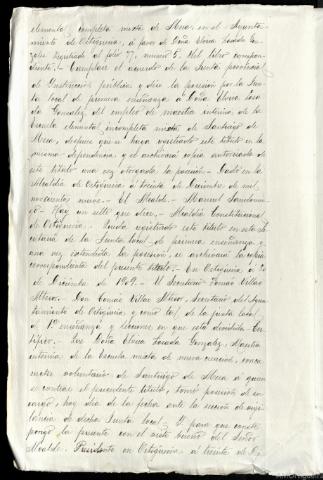 elemental completa mixta de Mera, en el Ayunta-
miento de Ortigueira, á favor de Doña Elena Losada Gon-
zalez Registrado al folio 77, número 5. Del libro correspon-
diente. Cumplase el acuerdo de la Junta provincial
de Instrucción pública y dése la posesión por la Jun-
ta local de primera enseñanza á Doña Elena Losa-
da Gonzalez, del empleo de maestra interina de la
Escuela elemental incompleta mixta de Santiago de
Mera, despues que se haya registrado este titulo en la
misma dependencia, y el archivará copia autorizada de
este titulo una vez otorgada la posesión. Dado en la
Alcaldia de Ortigueira á treinta de Diciembre de mil
novecientos nueve. El Alcalde. Manuel
Hay un sello que dice, Alcaldia Constitucional
de Ortigueira. Queda registrado este titulo en esta Se-
cretaria de la Junta local de primera enseñanza y
una vez extendida la posesión, se archivará la copia
correspondiente del presente titulo. En Ortigueira, á 30
de Diciembre de 1909. El Secretario Tomás Villar
Don Tomás Villar Secretario del Ayun-
tamiento de Ortigueira y como tal de la junta local
de 1ª enseñanza y secciones en que está dividida. Cer-
tifico. Que Doña Elena Losada Gonzalez, Maestra
interina de la Escuela mixta de nueva creación,
voluntaria de Santiago de Mera á quien
se contrae el precedente titulo, tomó posesión de su
cargo, hoy dia de la fecha ante la sección de
de dicha Junta local. Y para que conste
pongo la presente con el visto bueno del Señor
Alcalde. en Ortigueira á treinta de Di-